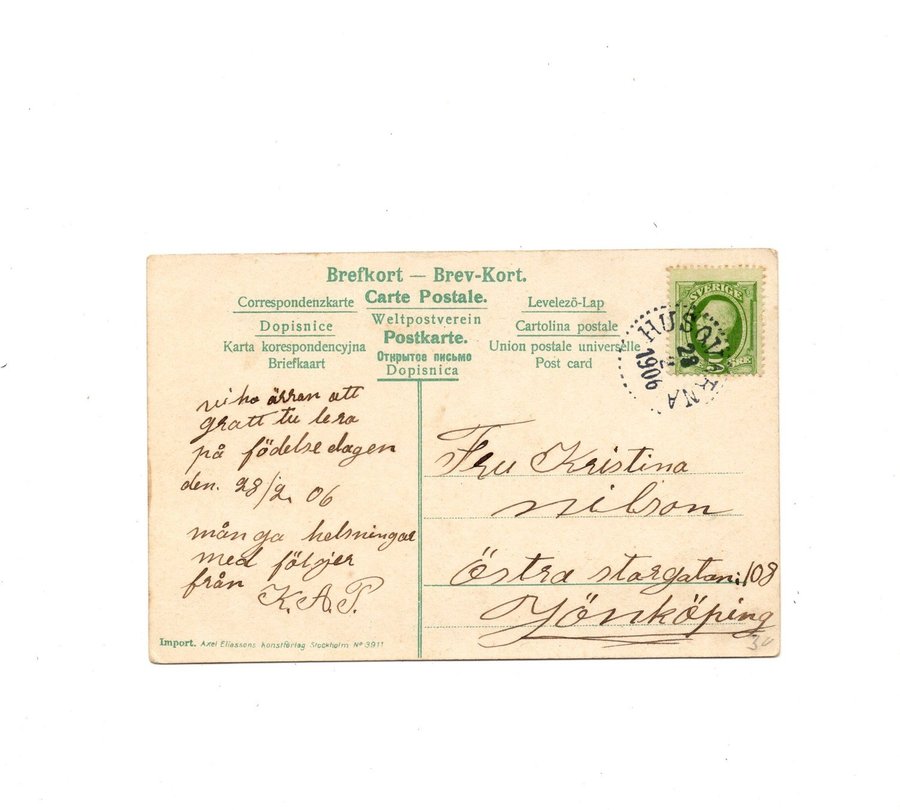 Brefkort — Brev-Kort.
Correspondenzkarte Carte Postale. Levelező-Lap
Dopisnice Weltpostverein Cartolina postale
Karta korespondencyjna Postkarte. Union postale universelle
Briefkaart Открытое письмо Post card
Dopisnica
SVERIGE
HUSQVARNA
28
1906
ÖRE
att
gratt tu lera
på födelsedagen
den. 28/2 06
många helsningar
med följer
från
K.A.P.
Fru Kristina
nilson
Östra storgatan 108
Yönköping
Import. Axel Eliassons Konstförlag Stockholm Nº 3911